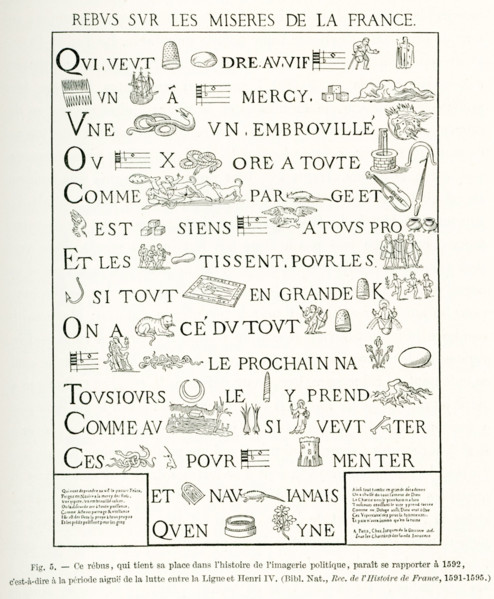 REBVS SVR LES MISERES DE LA FRANCE.
QVI, VEVT DRE.AV.VIF
VN Á MERCY.
VNE VN, EMBROVILLÉ
OV X ORE A TOVTE
COMME PAR GE ET
EST SIENS A TOVS PRO
ET LES TISSENT, POVR LES
SI TOVT EN GRANDE K
ON A CÉ DV TOVT
LE PROCHAIN NA
TOVSIOVRS LE Y PREND
COMME AV SI VEVT TER
CES POVR MENTER
ET NAV IAMAIS
QVEN YNE
Fig. 5. — Ce rébus, qui tient sa place dans l'histoire de l'imagerie politique, paraît se rapporter à 1592,
c'est-à-dire à la période aiguë de la lutte entre la Ligue et Henri IV. (Bibl. Nat., Rec. de l'Histoire de France, 1591-1595.)